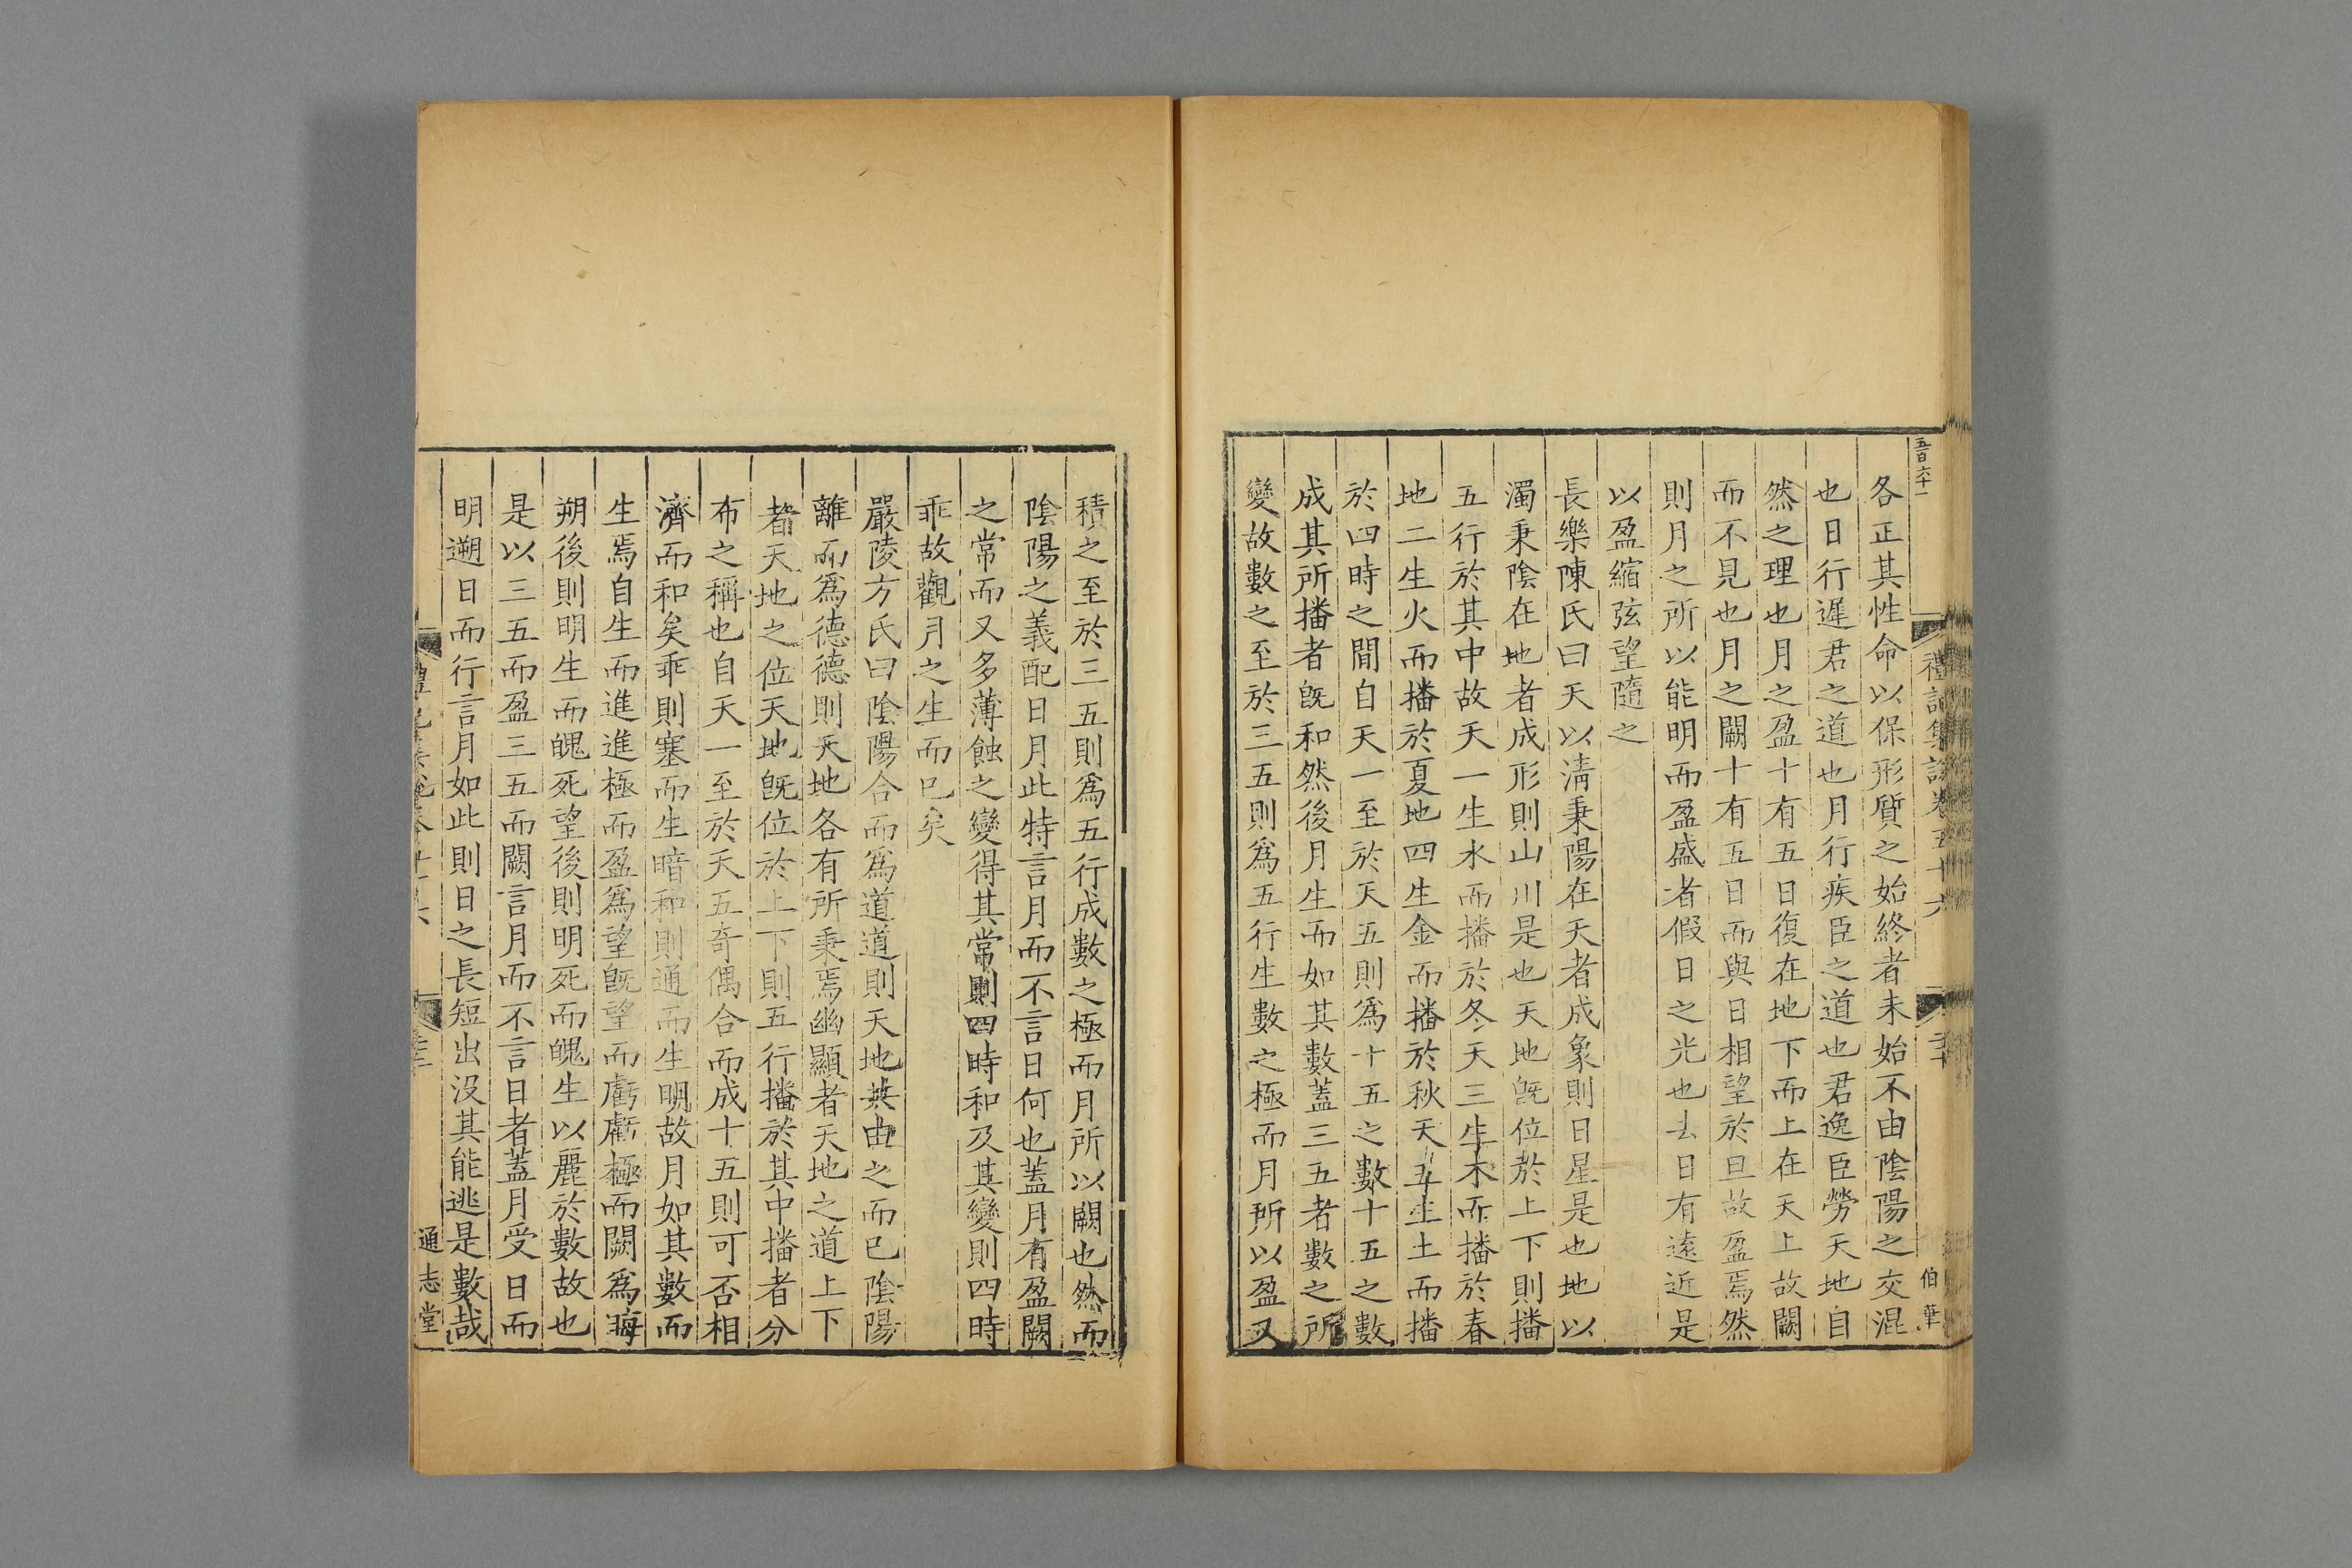 五百六十一
禮記集說卷五十六
二十
伯華
各正其性命以保形質之始終者未始不由陰陽之交混
也日行遲君之道也月行疾臣之道也君逸臣勞天地自
然之理也月之盈十有五日復在地下而上在天上故闕
而不見也月之闕十有五日而與日相望於旦故盈焉然
則月之所以能明而盈盛者假日之光也去日有遠近是
以盈縮弦望隨之
長樂陳氏曰天以淸秉陽在天者成象則日星是也地以
濁秉陰在地者成形則山川是也天地旣位於上下則播
五行於其中故天一生水而播於冬天三生木而播於春
地二生火而播於夏地四生金而播於秋天五生土而播
於四時之閒自天一至於天五則爲十五之數十五之數
成其所播者旣和然後月生而如其數蓋三五者數之所
變故數之至於三五則爲五行生數之極而月所以盈又
積之至於三五則爲五行成數之極而月所以闕也然而
陰陽之義配日月此特言月而不言日何也蓋月有盈闕
之常而又多薄蝕之變得其常則四時和及其變則四時
乖故觀月之生而已矣
嚴陵方氏曰陰陽合而爲道道則天地共由之而已陰陽
離而爲德德則天地各有所秉焉幽顯者天地之道上下
者天地之位天地旣位於上下則五行播於其中播者分
布之稱也自天一至於天五奇偶合而成十五則可否相
濟而和矣乖則塞而生暗和則通而生明故月如其數而
生焉自生而進進極而盈爲望旣望而虧虧極而闕爲晦
朔後則明生而魄死望後則明死而魄生以麗於數故也
是以三五而盈三五而闕言月而不言日者蓋月受日而
明遡日而行言月如此則日之長短出沒其能逃是數哉
通志堂